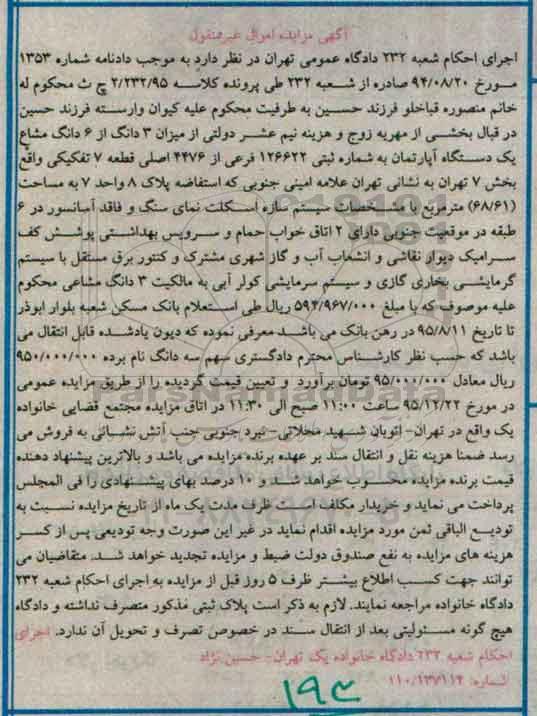 آگهی مزایده اموال غیرمنقول
اجرای احکام شعبه ۲۳۲ دادگاه عمومی تهران در نظر دارد به موجب دادنامه شماره ۱۳۵۳
مورخ ۹۴/۰۸/۲۰ صادره از شعبه ۲۳۲ طی پرونده کلاسه ۲/۲۳۲/۹۵ ج ث محکوم له
خانم منصوره قباخلو فرزند حسین به طرفیت محکوم علیه کیوان وارسته فرزند حسین
در قبال بخشی از مهریه زوج و هزینه نیم عشر دولتی از میزان ۳ دانگ از ۶ دانگ مشاع
یک دستگاه آپارتمان به شماره ثبتی ۱۲۶۶۲۲ فرعی از ۴۴۷۶ اصلی قطعه ۷ تفکیکی واقع
بخش ۷ تهران به نشانی تهران علامه امینی جنوبی که استفاضه پلاک ۸ واحد ۷ به مساحت
(۶۸/۶۱) مترمربع با مشخصات سیستم سازه اسکلت نمای سنگ و فاقد آسانسور در ۶
طبقه در موقعیت جنوبی دارای ۲ اتاق خواب حمام و سرویس بهداشتی پوشش کف
سرامیک دیوار نقاشی و انشعاب آب و گاز شهری مشترک و کنتور برق مستقل با سیستم
گرمایشی بخاری گازی و سیستم سرمایشی کولر آبی به مالکیت ۳ دانگ مشاعی محکوم
علیه موصوف که با مبلغ ۵۹۴/۹۶۷/۰۰۰ ریال طی استعلام بانک مسکن شعبه بلوار ابوذر
تا تاریخ ۹۵/۸/۱۱ در رهن بانک می باشد معرفی نموده که دیون یادشده قابل انتقال می
باشد که حسب نظر کارشناس محترم دادگستری سهم سه دانگ نام برده ۹۵۰/۰۰۰/۰۰۰
ریال معادل ۹۵/۰۰۰/۰۰۰ تومان برآورد و تعیین قیمت گردیده را از طریق مزایده عمومی
در مورخ ۹۵/۱۲/۲۲ ساعت ۱۱:۰۰ صبح الی ۱۱:۳۰ در اتاق مزایده مجتمع قضایی خانواده
یک واقع در تهران- اتوبان شهید محلاتی- نبرد جنوبی جنب آتش نشانی به فروش می
رسد ضمنا هزینه نقل و انتقال سند بر عهده برنده مزایده می باشد و بالاترین پیشنهاد دهنده
قیمت برنده مزایده محسوب خواهد شد و ۱۰ درصد بهای پیشنهادی را فی المجلس
پرداخت می نماید و خریدار مکلف است ظرف مدت یک ماه از تاریخ مزایده نسبت به
تودیع الباقی ثمن مورد مزایده اقدام نماید در غیر این صورت وجه تودیعی پس از کسر
هزینه های مزایده به نفع صندوق دولت ضبط و مزایده تجدید خواهد شد. متقاضیان می
توانند جهت کسب اطلاع بیشتر ظرف ۵ روز قبل از مزایده به اجرای احکام شعبه ۲۳۲
دادگاه خانواده مراجعه نمایند. لازم به ذکر است پلاک ثبتی مذکور متصرف نداشته و دادگاه
هیچ گونه مسئولیتی بعد از انتقال سند در خصوص تصرف و تحویل آن ندارد. اجرای
احکام شعبه ۲۳۲ دادگاه خانواده یک تهران- حسین نژاد
شماره: ۱۱۰/۱۳۷۱۱۴
ParsNamadData